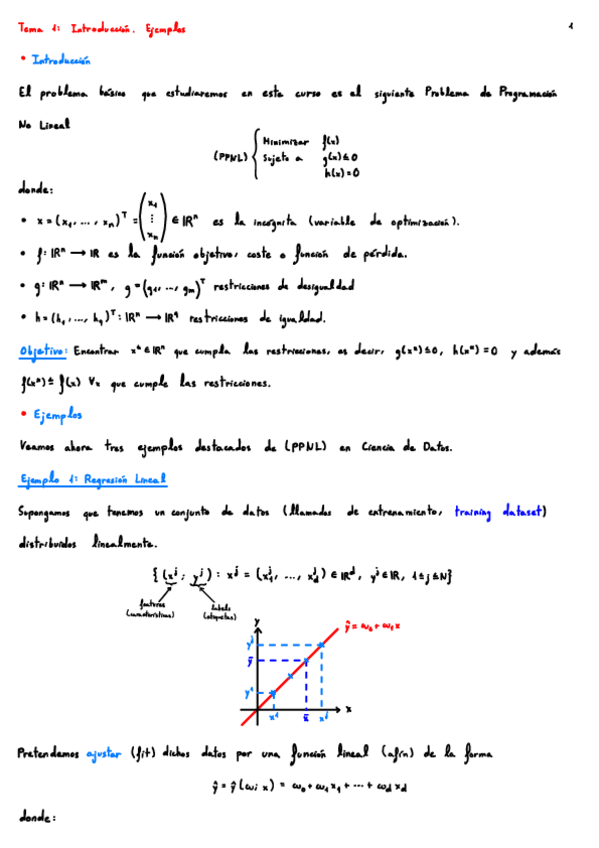 Tema 1: Introducción. Ejemplos
1
• Introducción
El problema básico que estudiaremos en este curso es el siguiente Problema de Programación
No Lineal
(PPNL) { Minimizar f(x)
Sujeto a g(x) ≤ 0
h(x) = 0
donde:
• x = (x₁, ..., xₙ)ᵀ = (x₁ ⋮ xₙ) ∈ ℝⁿ es la incógnita (variable de optimización).
• f: ℝⁿ → ℝ es la función objetivo, coste o función de pérdida.
• g: ℝⁿ → ℝᵐ, g = (g₁, ..., gₘ)ᵀ restricciones de desigualdad
• h = (h₁, ..., h_q)ᵀ: ℝⁿ → ℝ^q restricciones de igualdad.
Objetivo: Encontrar x* ∈ ℝⁿ que cumpla las restricciones, es decir, g(x*) ≤ 0, h(x*) = 0 y además
f(x*) ≤ f(x) ∀x que cumple las restricciones.
• Ejemplos
Veamos ahora tres ejemplos destacados de (PPNL) en Ciencia de Datos.
Ejemplo 1: Regresión Lineal
Supongamos que tenemos un conjunto de datos (llamados de entrenamiento, training dataset)
distribuidos linealmente.
{ (x^j; y^j) : x^j = (x₁^j, ..., x_d^j) ∈ ℝ^d, y^j ∈ ℝ, 1 ≤ j ≤ N}
features labels
(características) (etiquetas)
y
ŷ = ω₀ + ω₁x
y^j
ȳ
y¹
x
x¹ x̄ x^j
Pretendemos ajustar (fit) dichos datos por una función lineal (afín) de la forma
ŷ = ŷ(ω; x) = ω₀ + ω₁x₁ + ··· + ω_d x_d
donde: